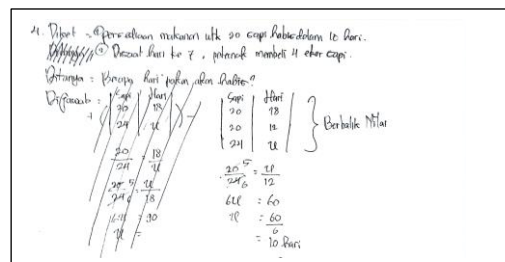 4. Diket = * persediaan makanan utk 20 sapi habis dalam 18 hari.
* Disaat hari ke 7, peternak membeli 4 ekor sapi.
Ditanya = Berapa hari pakan akan habis?
Dijawab :
Sapi | Hari
20 | 18
24 | x
Sapi | Hari
20 | 18
20 | 12
24 | x
} Berbalik Nilai
20/24 = 18/x
20 5/24 6 = x/18
= 90
x =
20 5/24 6 = x/12
6x = 60
x = 60/6
= 10 hari